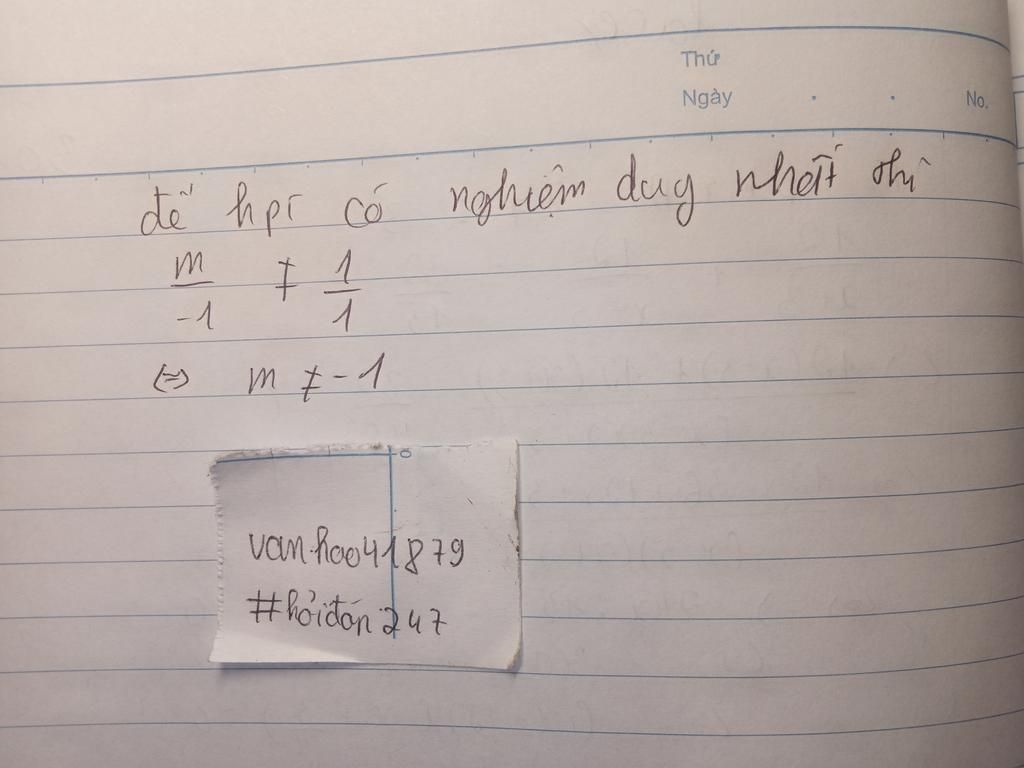 Thứ
Ngày . . No.
để hpt có nghiệm duy nhất thì
m/-1 ≠ 1/1
<=> m ≠ -1
vanhoo41879
#hỏiđán247